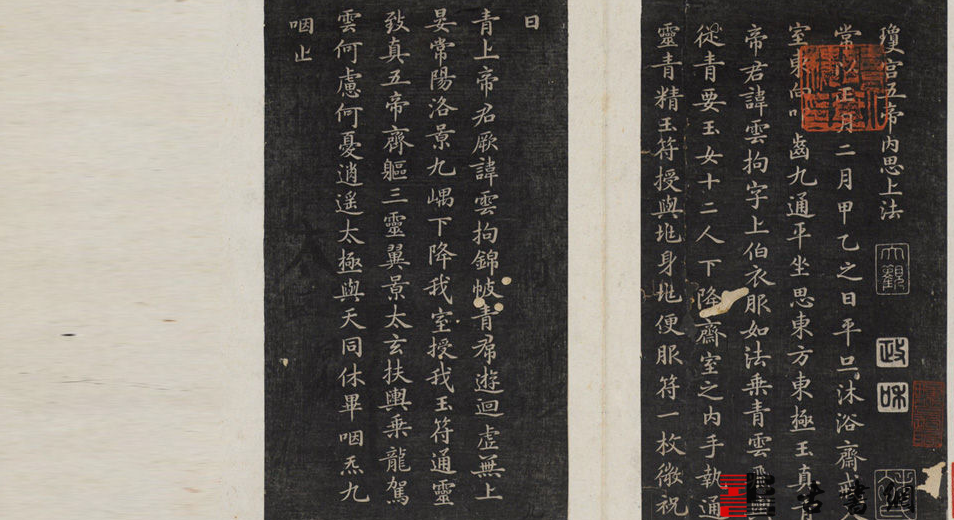 瓊宮五帝內思上法
常以正月二月甲乙之日平旦沐浴齋戒入
室東向叩齒九通平坐思東方東極玉真青
帝君諱雲拘字上伯衣服如法乘青雲飛輿
從青要玉女十二人下降齋室之內手執通
靈青精玉符授與地身地便服符一枚微祝
曰
青上帝君厥諱雲拘錦帔青帬遊迴虛無上
晏常陽洛景九嵎下降我室授我玉符通靈
致真五帝齊軀三靈翼景太玄扶輿乘龍駕
雲何慮何憂逍遥太極與天同休畢咽炁九
咽止
大觀
政
和
古書網